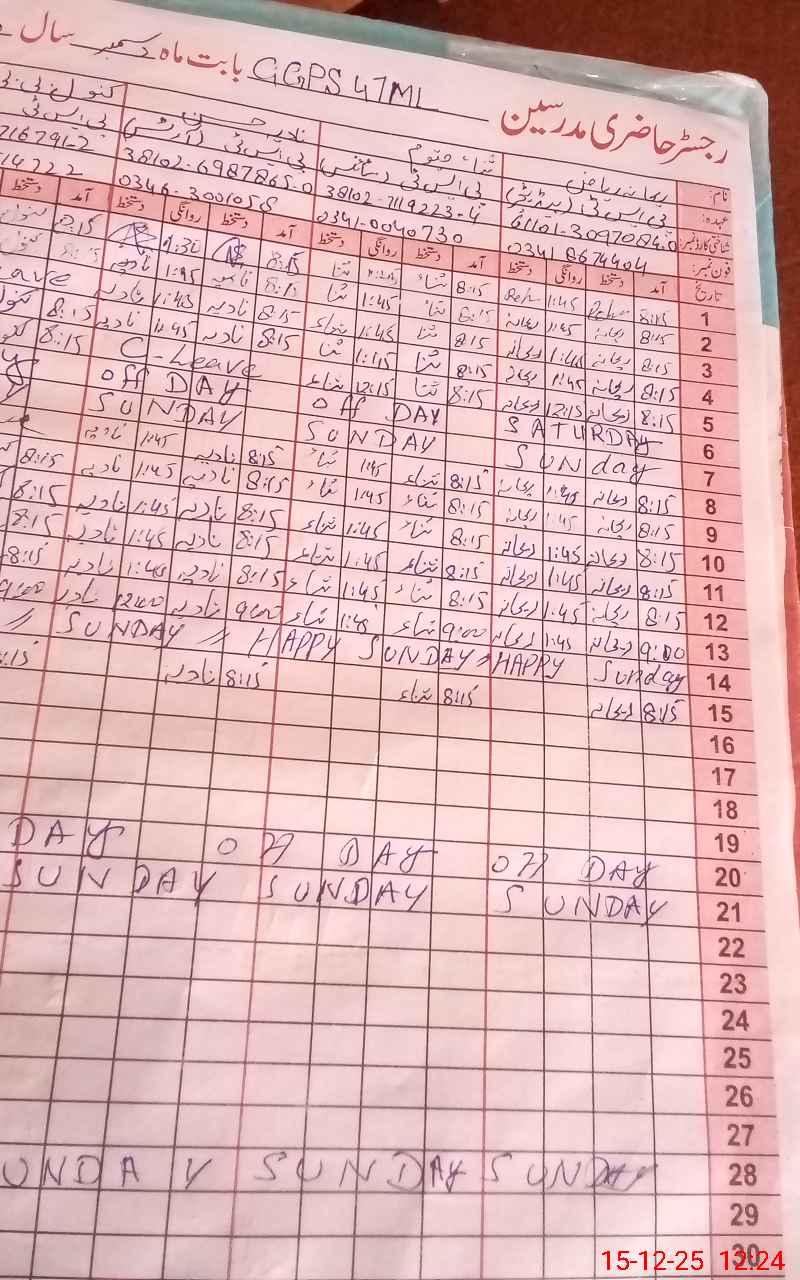 رجسٹر حاضری مدرسین GGPS 47ML بابت ماہ دسمبر سال
نام: ریحانہ ریاض ثناء نادیہ کنول بی بی
عہدہ: پی ایس ٹی پی ایس ٹی (سائنس) پی ایس ٹی (آرٹس) پی ایس ٹی
شناختی کارڈ نمبر: 61101-3097084-0 38102-7119223-4 38102-6987865-0
فون نمبر: 0341 8674404 0341-0040730 0346-3001058
تاریخ آمد دستخط روانگی دستخط آمد دستخط روانگی دستخط آمد دستخط روانگی دستخط آمد دستخط
1 8:15 1:45 8:15 ثناء ثنا 8:15 8:15
2 8:15 ریحانہ 1:45 ریحانہ 8:15 ثناء 1:45 ثنا 8:15 نادیہ 1:45 نادیہ 8:15
3 8:15 ریحانہ 1:45 ریحانہ 8:15 ثنا 1:45 ثناء 8:15 نادیہ 1:45 نادیہ 8:15
4 8:15 ریحانہ 1:45 ریحانہ 8:15 ثنا 1:45 ثنا 8:15 نادیہ 1:45 نادیہ 8:15
5 8:15 ریحانہ 12:15 ریحانہ 8:15 ثنا 12:15 ثناء C-Leave
6 SATURDAY Off DAY off DAY
7 SUNday SUNDAY SUNDAY
8 8:15 ریحانہ 1:45 ریحانہ 8:15 ثناء 1:45 ثناء 8:15 نادیہ 1:45 نادیہ
9 8:15 ریحانہ 1:45 ریحانہ 8:15 ثناء 1:45 ثناء 8:15 نادیہ 1:45 نادیہ 8:15
10 8:15 ریحانہ 1:45 ریحانہ 8:15 ثناء 1:45 ثناء 8:15 نادیہ 1:45 نادیہ 8:15
11 8:15 ریحانہ 1:45 ریحانہ 8:15 ثناء 1:45 ثناء 8:15 نادیہ 1:45 نادیہ 8:15
12 8:15 ریحانہ 1:45 ریحانہ 8:15 ثناء 1:45 ثناء 8:15 نادیہ 1:45 نادیہ 8:15
13 9:00 ریحانہ 1:45 ریحانہ 9:00 ثناء 1:45 ثناء 9:00 نادیہ 12:00 نادیہ 9:00
14 HAPPY Sunday HAPPY SUNDAY SUNDAY
15 8:15 ریحانہ 8:15 ثناء 8:15 نادیہ 8:15
16
17
18
19
20 off DAY off DAY DAY
21 SUNDAY SUNDAY SUNDAY
22
23
24
25
26
27
28 SUNDAY SUNDAY UNDAY
29
30
15-12-25 12:24